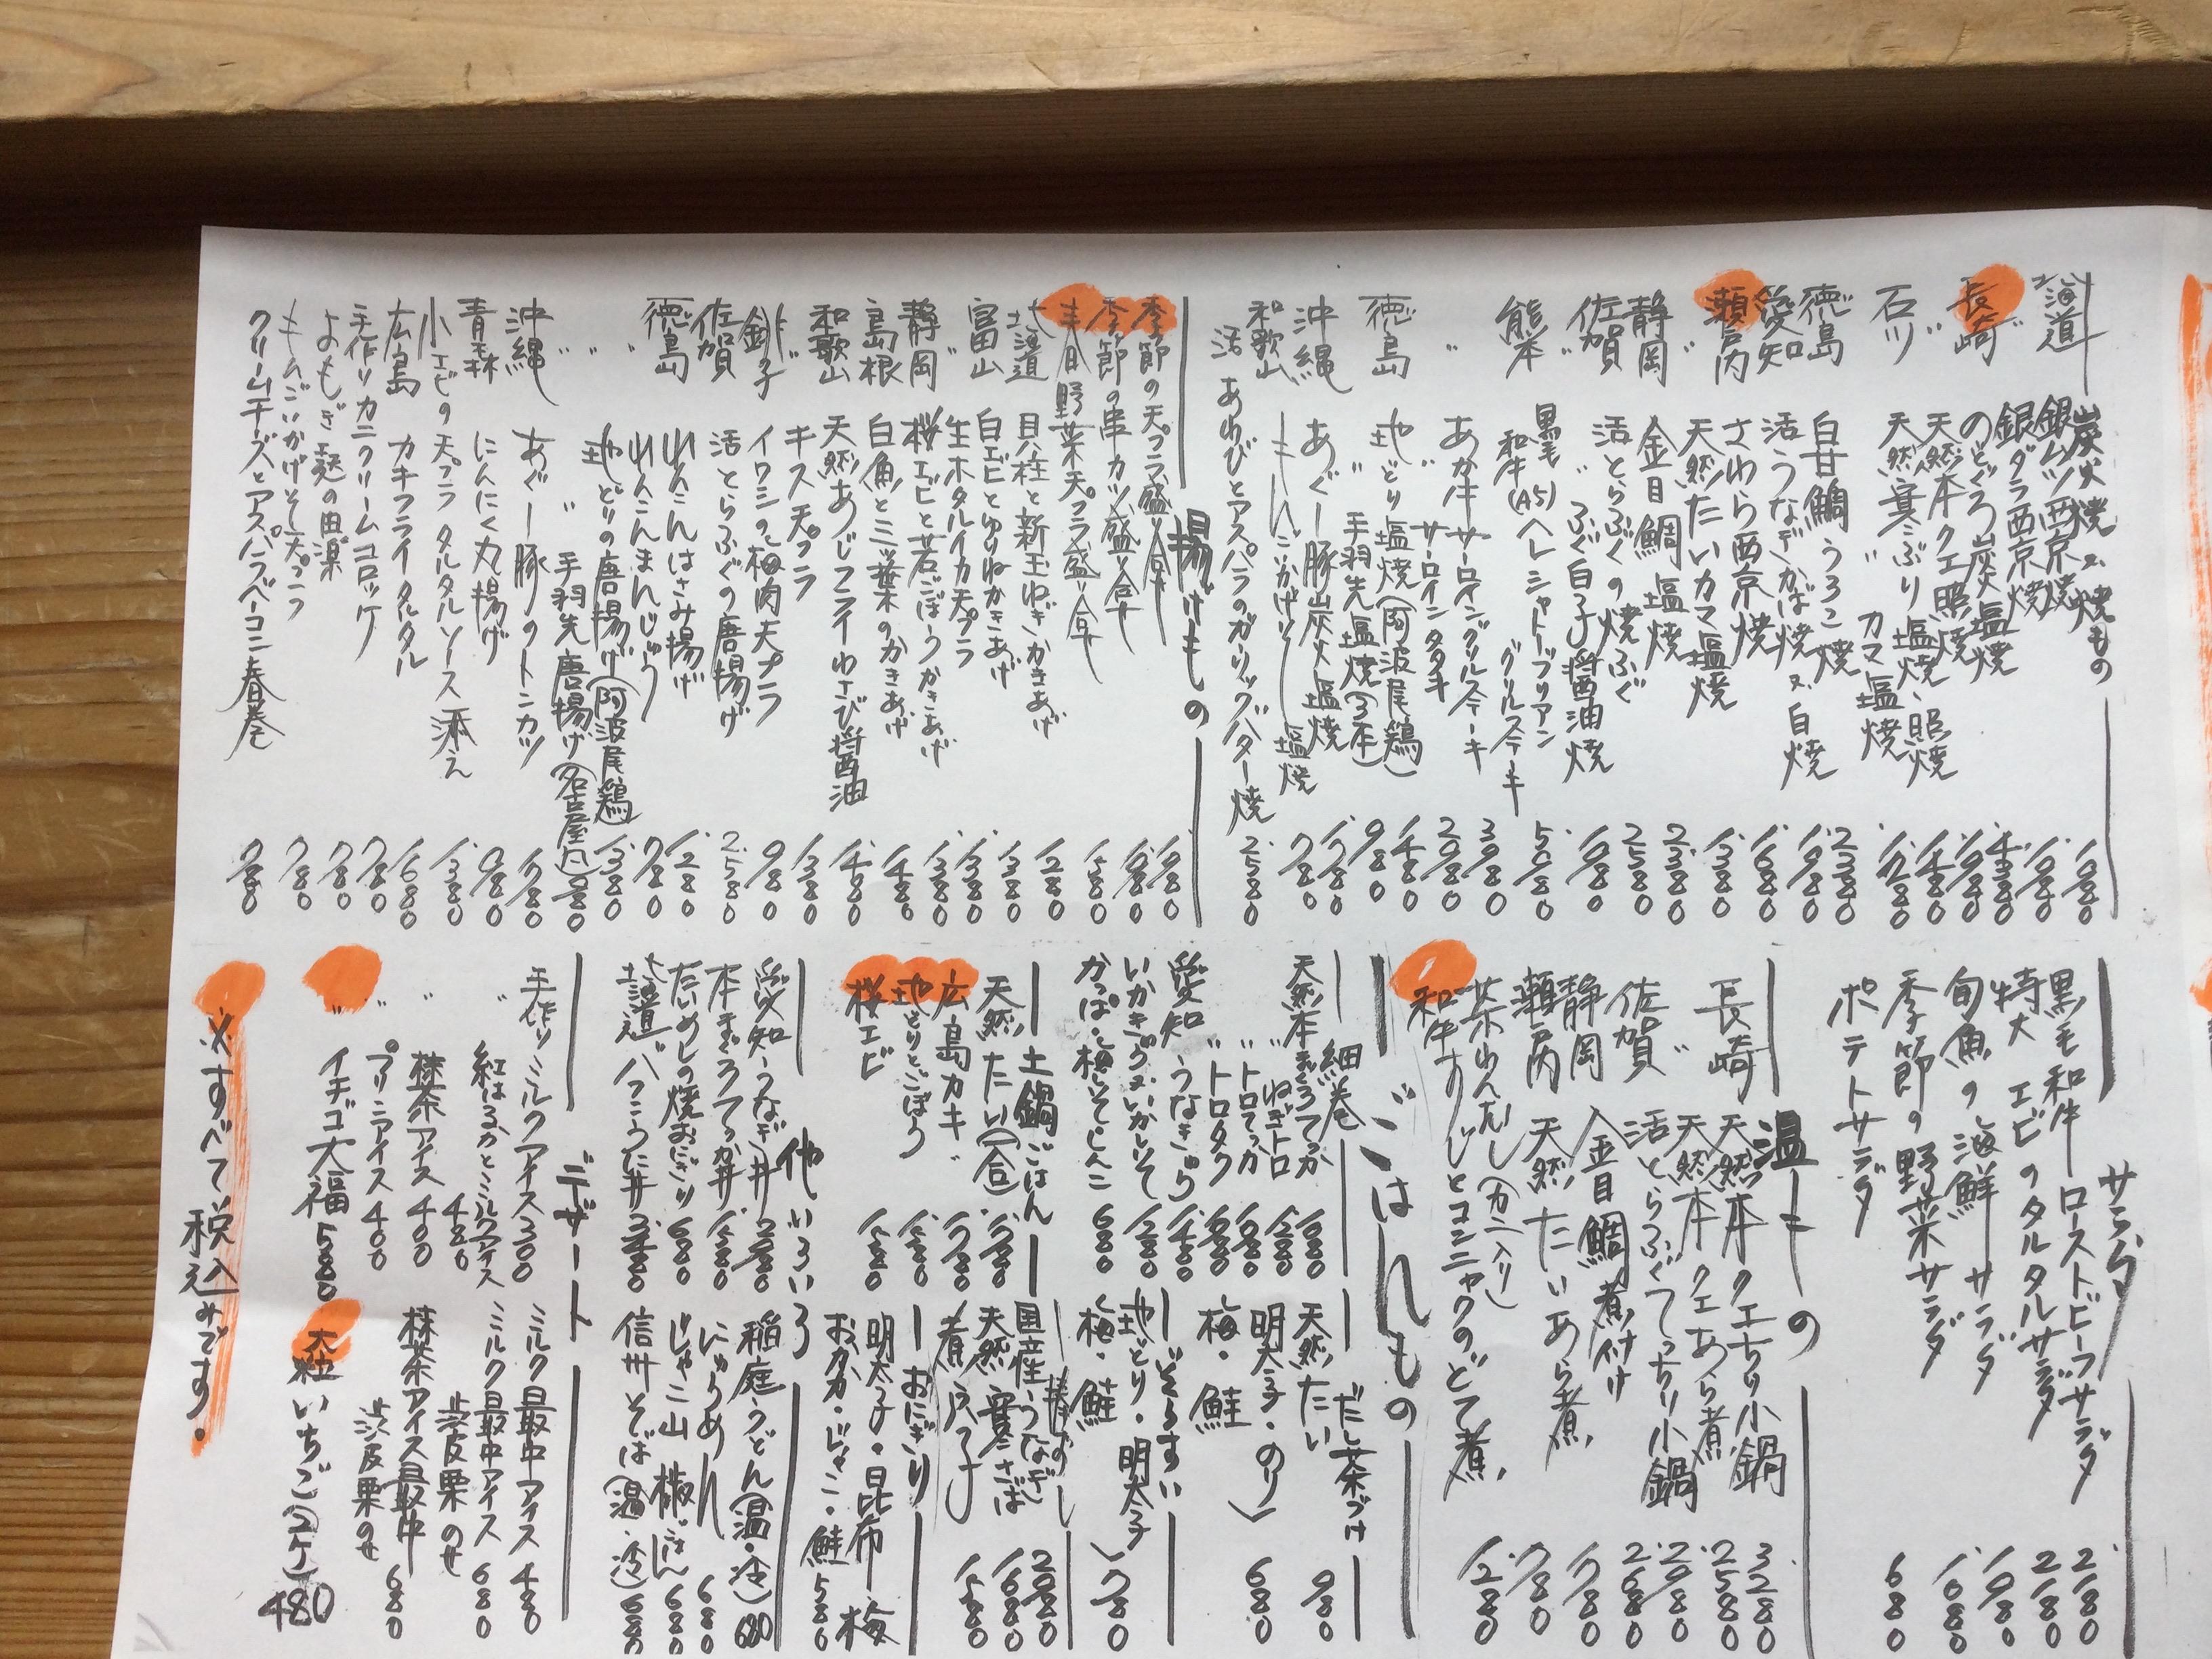 炭火焼又は焼もの
北海道 銀ムツ西京焼 1,980
銀ダラ西京焼 1,980
長崎 のどぐろ炭塩焼 4,380
〃 天然本クエ照焼 1,980
石川 天然寒ぶり塩焼、照焼 1,480
〃 〃 カマ塩焼 1,280
徳島 白甘鯛うろこ焼 2,380
愛知 活うなぎかば焼又は白焼
瀬戸内 さわら西京焼 1,680
〃 天然たいカマ塩焼 1,380
静岡 金目鯛塩焼 2,380
佐賀 活とらふぐの焼ふぐ 2,580
〃 〃 ふぐ白子醤油焼 1,980
熊本 黒毛和牛(A5)ヘレシャトーブリアングリルステーキ
〃 あか牛サーロイングリルステーキ 3,980
〃 〃 サーロインタタキ 2,980
徳島 地どり塩焼(阿波尾鶏) 1,480
〃 〃 手羽先塩焼(3本) 980
沖縄 あぐー豚炭火塩焼 1,780
もんごいかげそ塩焼 780
和歌山 活あわびとアスパラのガーリックバター焼 2,580
揚げもの
季節の天プラ盛り合せ 1,980
季節の串カツ盛り合せ 1,980
春野菜天プラ盛り合せ 1,580
北海道 貝柱と新玉ねぎかきあげ 1,280
富山 白エビとゆりねかきあげ 1,380
〃 生ホタルイカ天プラ 1,380
静岡 桜エビと若ごぼうかきあげ 1,380
島根 白魚と三ッ葉のかきあげ 1,480
和歌山 天然あじフライわさび醤油 1,480
〃 キス天プラ 1,380
銚子 イワシの梅肉天プラ 980
佐賀 活とらふぐの唐揚げ 2,580
徳島 れんこんはさみ揚げ 1,280
〃 れんこんまんじゅう 780
〃 地どりの唐揚げ(阿波尾鶏) 1,380
〃 〃 手羽先唐揚げ(名古屋風)
沖縄 あぐー豚のトンカツ 1,780
青森 にんにく丸揚げ 980
小エビの天プラタルタルソース添え 1,380
広島 カキフライタルタル 1,680
手作りカニクリームコロッケ 780
よもぎ麩の田楽 780
もんごいかげそ天プラ 780
クリームチーズとアスパラベーコン春巻 780
サラダ
黒毛和牛ローストビーフサラダ 2,180
特大エビのタルタルサラダ 2,180
旬魚の海鮮サラダ 1,980
季節の野菜サラダ 1,080
ポテトサラダ 680
温もの
長崎 天然本クエちり小鍋 3,280
〃 天然本クエあら煮 2,580
佐賀 活とらふぐてっちり小鍋 2,980
静岡 金目鯛煮付け 2,680
瀬戸内 天然たいあら煮 1,780
茶わんむし(カニ入り) 780
和牛すじとコンニャクのどて煮 1,280
ごはんもの
細巻
天然本まぐろてっか 1,680
〃 ねぎトロ 1,280
〃 トロてっか
〃 トロタク
愛知 うなきゅう 1,480
いかきゅう又はいかしそ 1,280
かっぱ・梅しそしんこ 680
だし茶づけ
天然たい 980
明太子・のり
梅・鮭 680
ぞうすい
地どり・明太子
梅・鮭 780
土鍋ごはん
天然たい(一合)
広島カキ 1,780
地とりとごぼう 1,580
桜エビ 1,580
棒ずし
国産うなぎ 2,980
天然寒さば 1,680
煮穴子 1,580
おにぎり
明太子・昆布・梅
おかか・じゃこ・鮭 580
他いろいろ
愛知 うなぎ丼
本まぐろてっか丼 1,580
たいめしの焼おにぎり 680
北海道 バフンうに丼
稲庭うどん(温・冷) 680
にゅうめん 680
じゃこ山椒ごはん 680
信州そば(温・冷) 680
デザート
手作りミルクアイス 300
〃 紅はるかとミルクアイス 480
〃 抹茶アイス 400
〃 プリンアイス 400
〃 イチゴ大福 580
ミルク最中アイス 480
ミルク最中アイス渋皮栗のせ 680
抹茶アイス最中渋皮栗のせ 680
大粒いちご(2ケ) 480
※すべて税込みです。